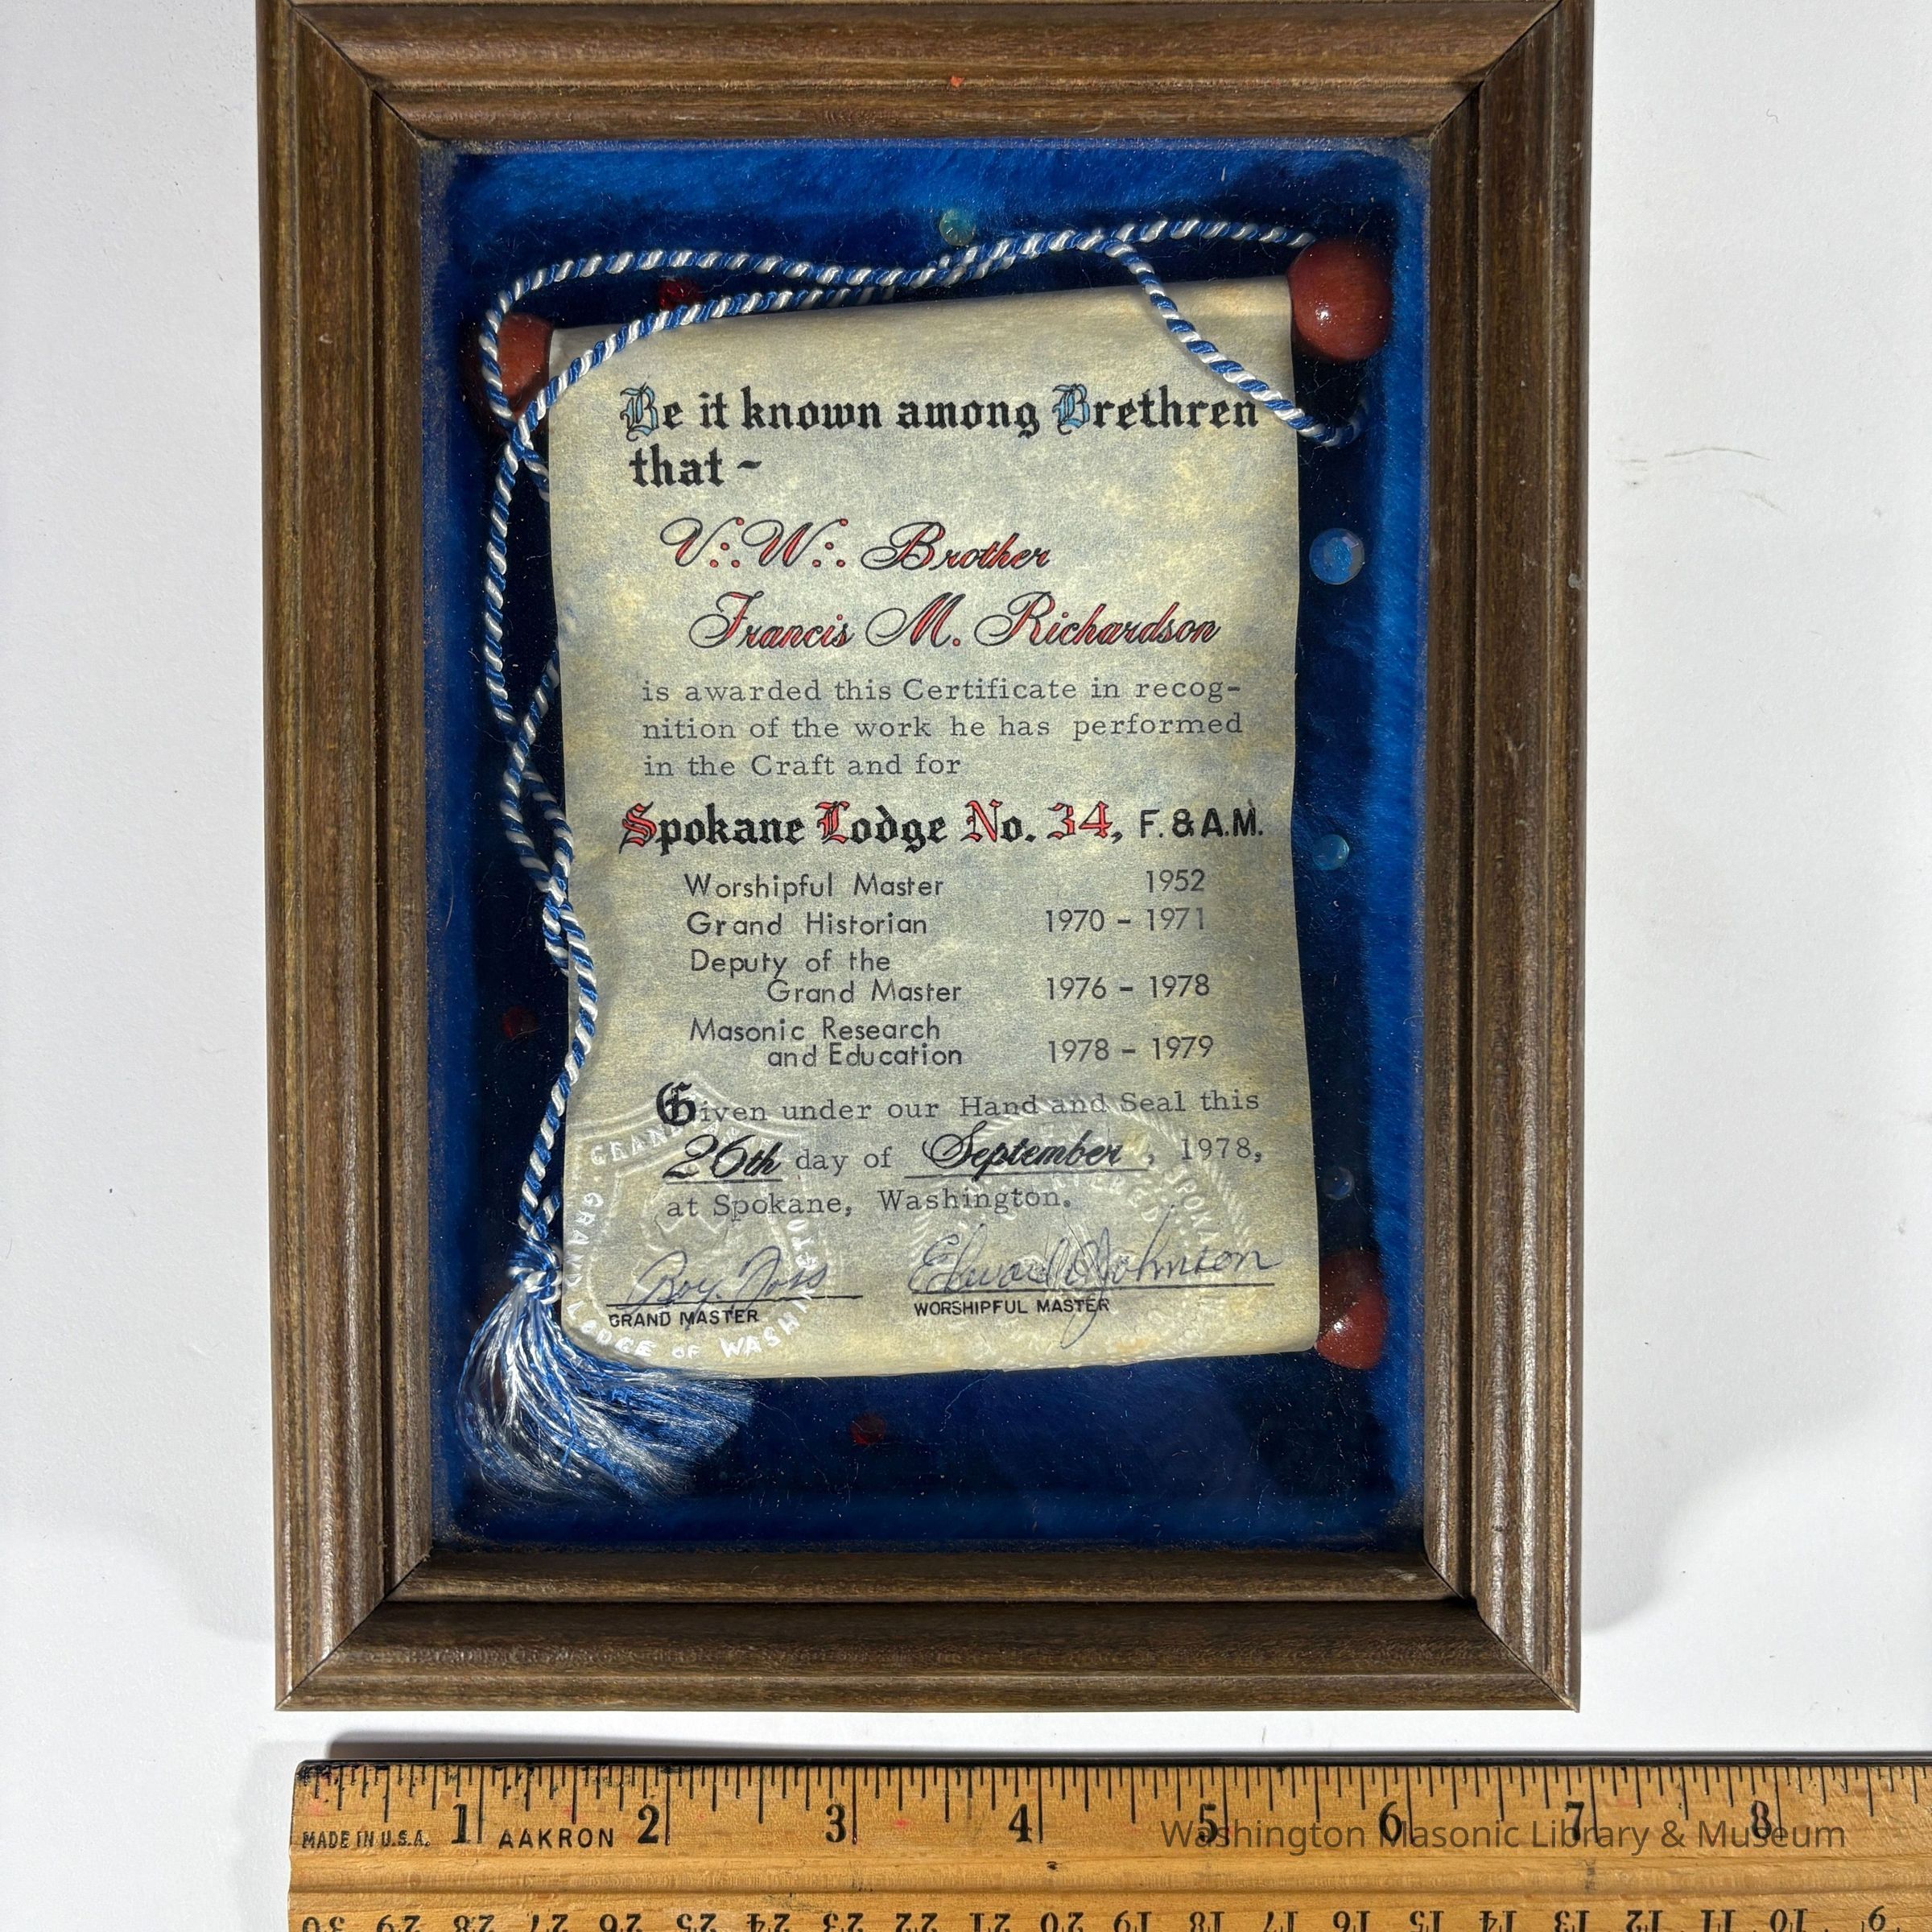 Be it known among Brethren
that ~
V∴W∴ Brother
Francis M. Richardson
is awarded this Certificate in recog-
nition of the work he has performed
in the Craft and for
Spokane Lodge No. 34, F. & A.M.
Worshipful Master 1952
Grand Historian 1970 - 1971
Deputy of the
Grand Master 1976 - 1978
Masonic Research
and Education 1978 - 1979
Given under our Hand and Seal this
26th day of September, 1978,
at Spokane, Washington.
Roy Foss Edward Johnson
GRAND MASTER WORSHIPFUL MASTER
GRAND LODGE OF WASHINGTON
SPOKA
1 2 3 4 5 6 7 8
MADE IN U.S.A. AAKRON
Washington Masonic Library & Museum
30 29 28 27 26 25 24 23 22 21 20 19 18 17 16 15 14 13 12 11 10 9